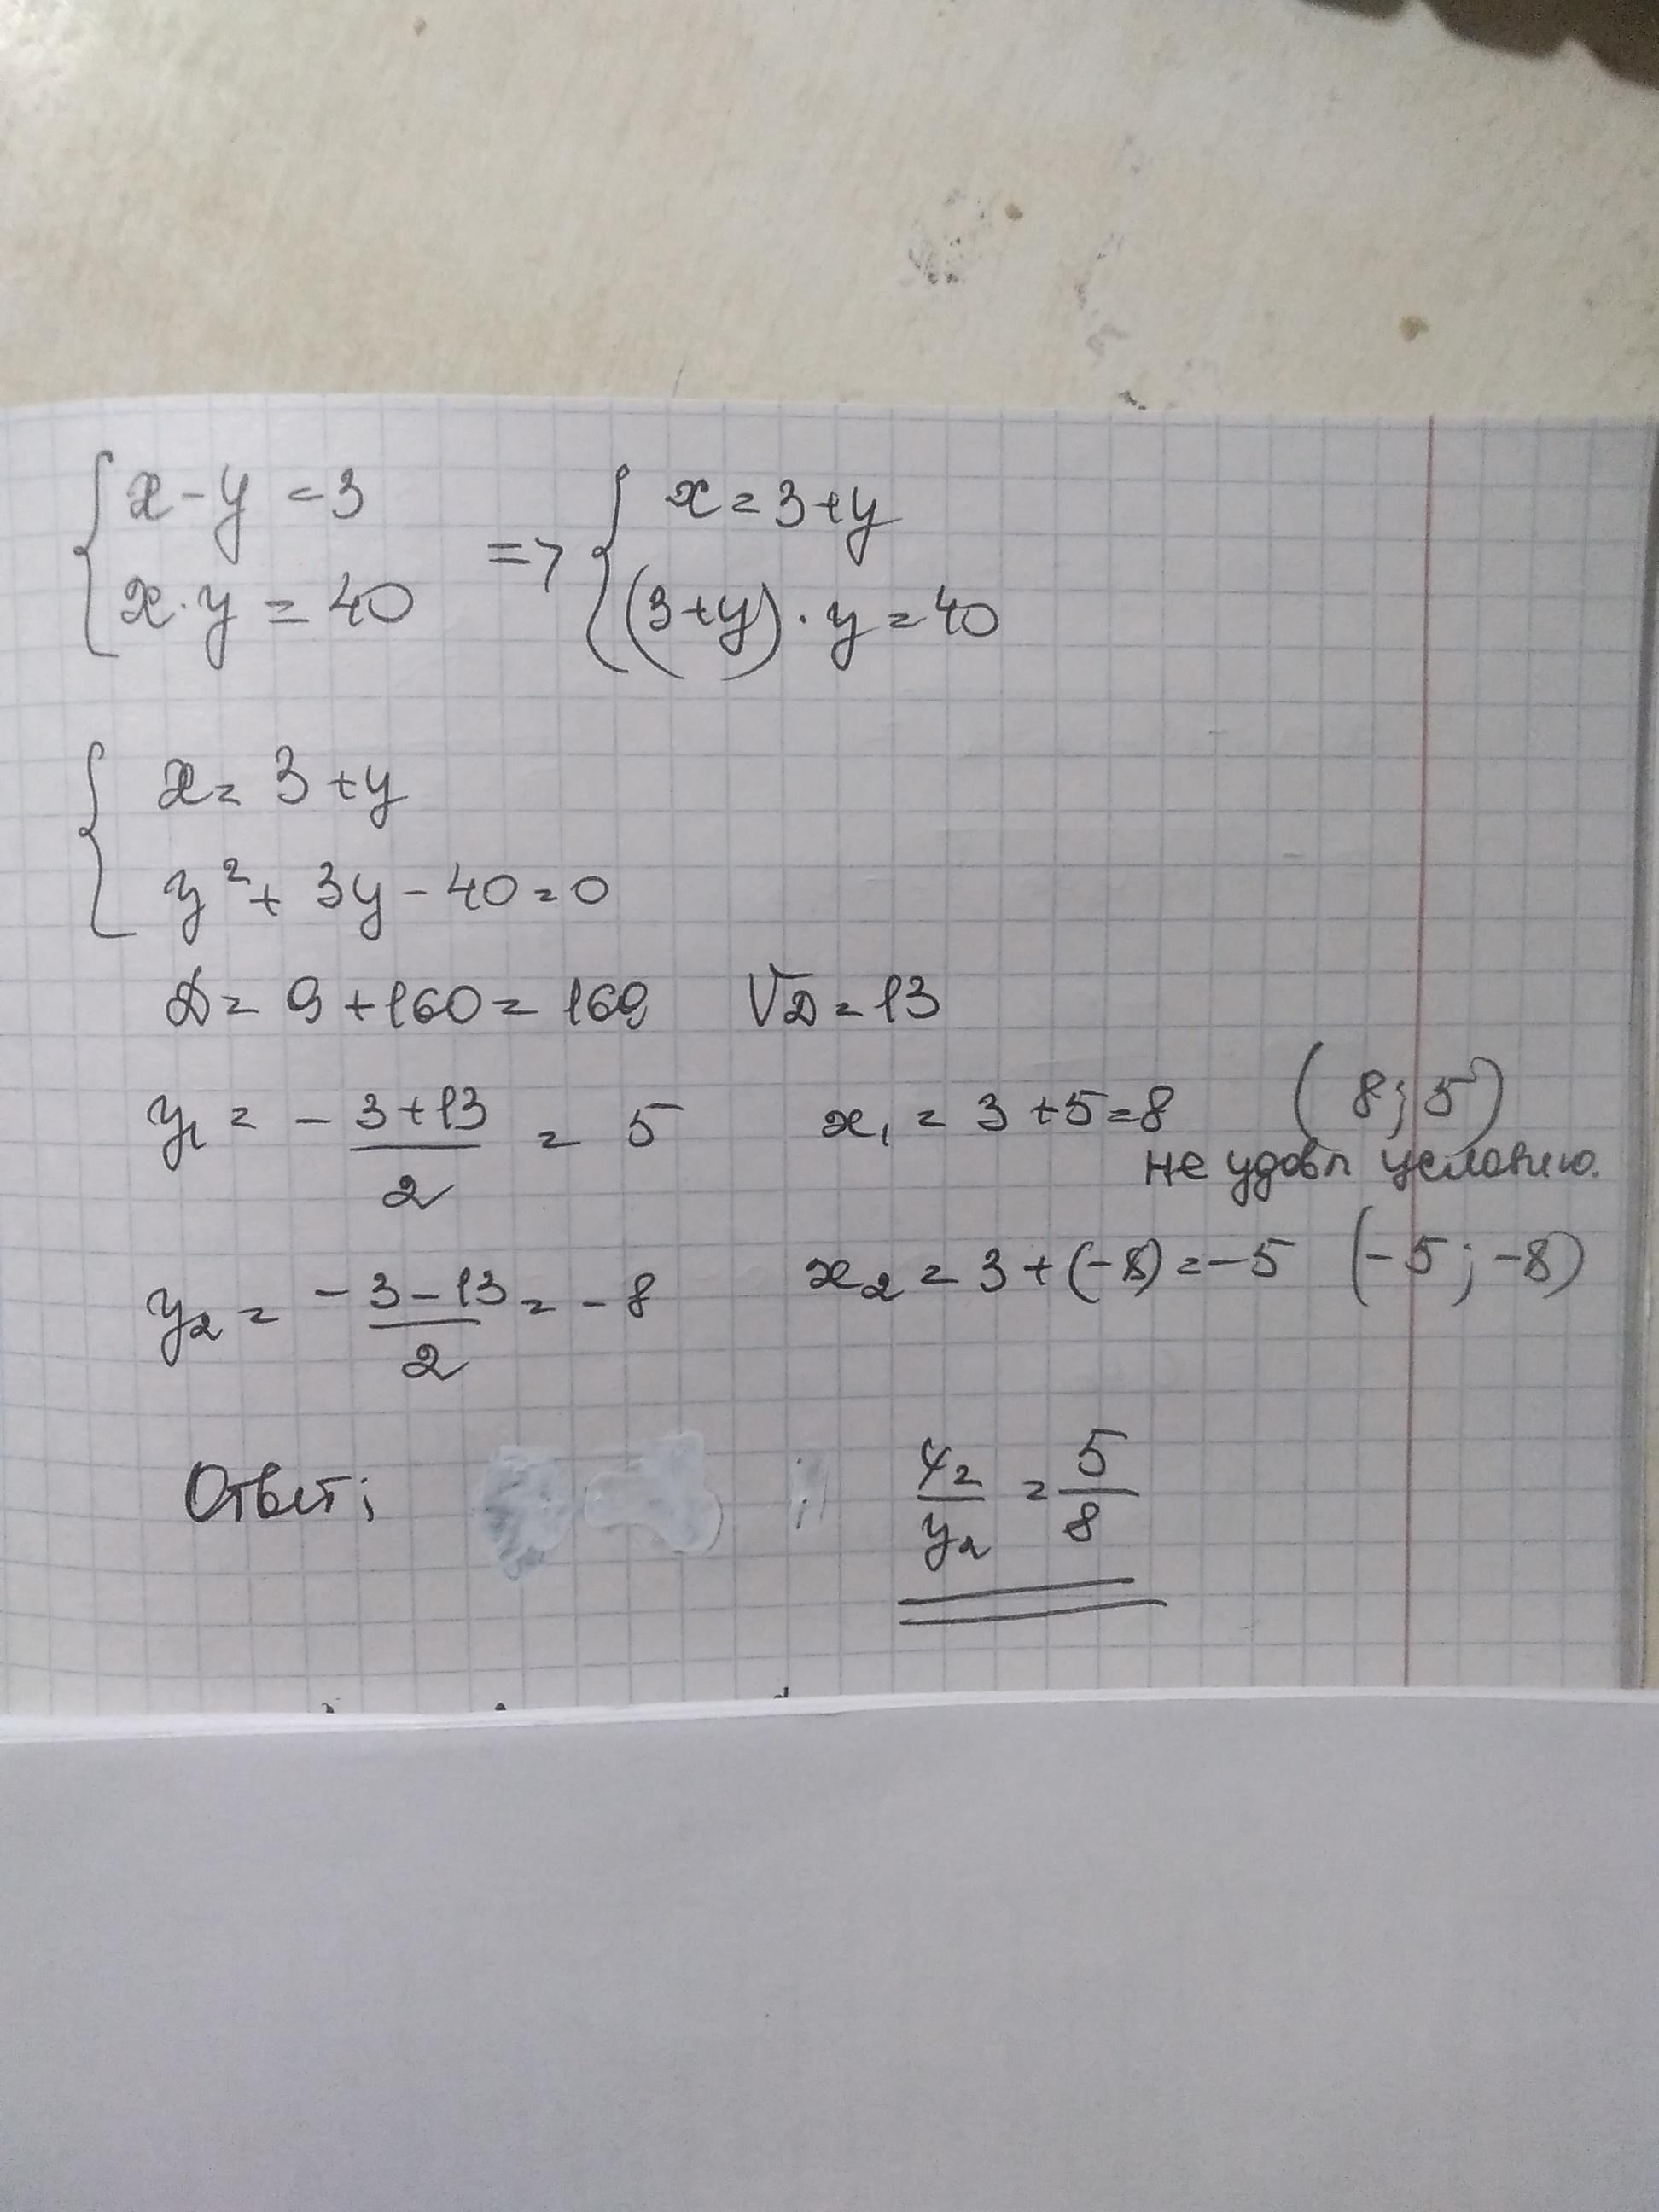 { x - y = 3 => { x = 3 + y
x · y = 40 (3 + y) · y = 40
{ x = 3 + y
y² + 3y - 40 = 0
D = 9 + 160 = 169 √D = 13
y₁ = - 3 + 13 / 2 = 5 x₁ = 3 + 5 = 8 (8; 5)
не удовл условию.
y₂ = - 3 - 13 / 2 = - 8 x₂ = 3 + (-8) = -5 (-5; -8)
Ответ: x₂ / y₂ = 5 / 8